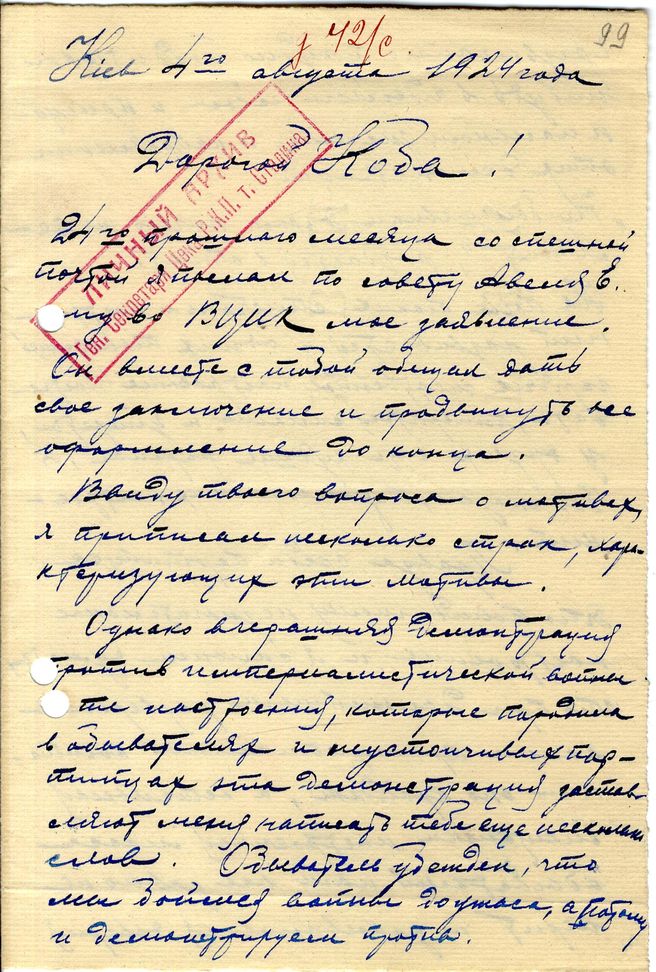 42/с.
99
Кіев 4го августа 1924 года
Дорогой Коба!
ЛИЧНЫЙ АРХИВ
Ген. Секретаря Цека Р.К.П. т. Сталина
24го прошлого месяца со спешной
почтой я послал по совету Авеля Е.
во ВЦИК мое заявление.
Он вместе с тобой обещал дать
свое заключение и продвинуть все
оформление до конца.
Ввиду твоего вопроса о мотивах,
я приписал несколько строк, хара-
ктеризующих эти мотивы.
Однако вчерашняя демонстрация
против империалистической войны
те настроения, которые породила
в обывателях и неустойчивых пар-
тийцах эта демонстрация застав-
ляют меня написать тебе еще несколько
слов. Обыватель убежден, что
мы боимся войны до ужаса, а потому
и демонстрируем против.